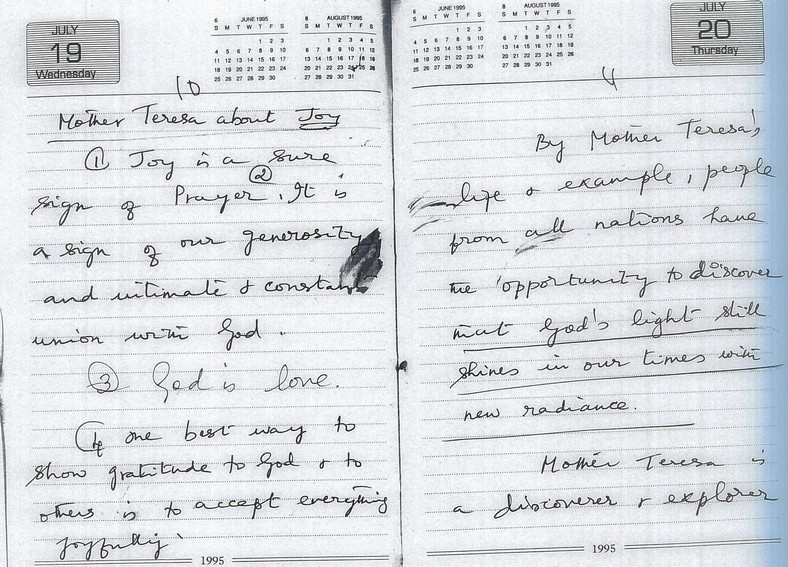 JULY
19
Wednesday
6 JUNE 1995
S M T W T F S
1 2 3
4 5 6 7 8 9 10
11 12 13 14 15 16 17
18 19 20 21 22 23 24
25 26 27 28 29 30
8 AUGUST 1995
S M T W T F S
1 2 3 4 5
6 7 8 9 10 11 12
13 14 15 16 17 18 19
20 21 22 23 24 25 26
27 28 29 30 31
10
Mother Teresa about Joy
① Joy is a sure
sign of Prayer. ② It is
a sign of our generosity
and intimate & constant
union with God.
③ God is love.
④ one best way to
show gratitude to God & to
others is to accept everything
joyfully.
1995
6 JUNE 1995
S M T W T F S
1 2 3
4 5 6 7 8 9 10
11 12 13 14 15 16 17
18 19 20 21 22 23 24
25 26 27 28 29 30
8 AUGUST 1995
S M T W T F S
1 2 3 4 5
6 7 8 9 10 11 12
13 14 15 16 17 18 19
20 21 22 23 24 25 26
27 28 29 30 31
JULY
20
Thursday
By Mother Teresa's
life & example, people
from all nations have
the opportunity to discover
that God's light still
shines in our times with
new radiance.
Mother Teresa is
a discoverer & explorer
1995